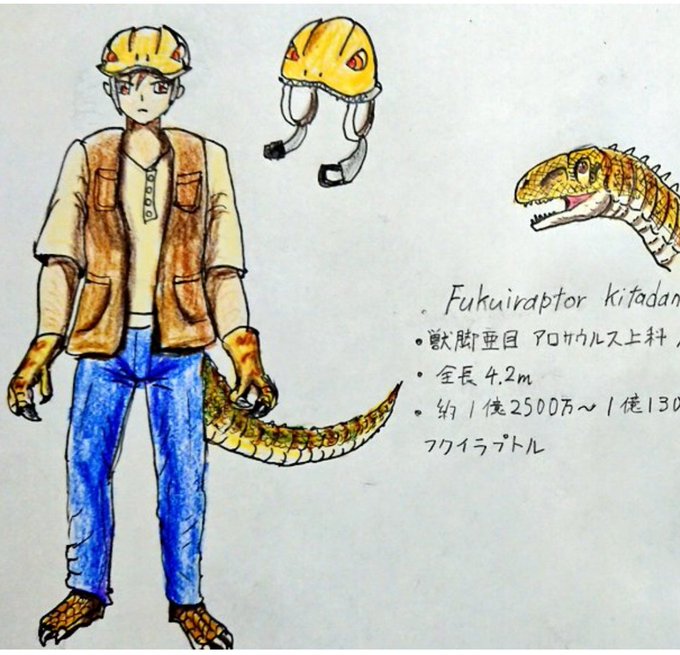 。Fukuiraptor kitadan
・獣脚亜目 アロサウルス上科
・全長4.2m
・約1億2500万〜1億130
フクイラプトル